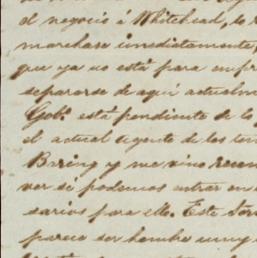 el negocio á Whitehead, lo
marchase inmediatamente,
que ya no está para empr
separarse de aqui actualm
Gobº está pendiente de lo
el actual agente de los ten
Baring y me vino recom
ver si podemos entrar en
sarios para ello. Este Sor
parece ser hombre muy